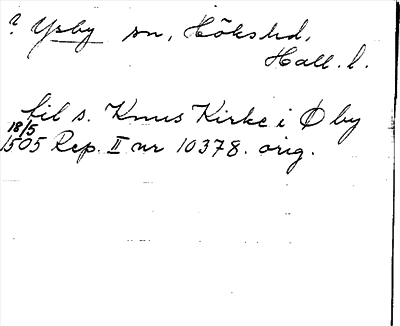 ? Ysby sn, Höks hd,
Hall. l.
til s. Knus Kirke i Ø by
18/5
1505 Rep. II nr 10378. orig.